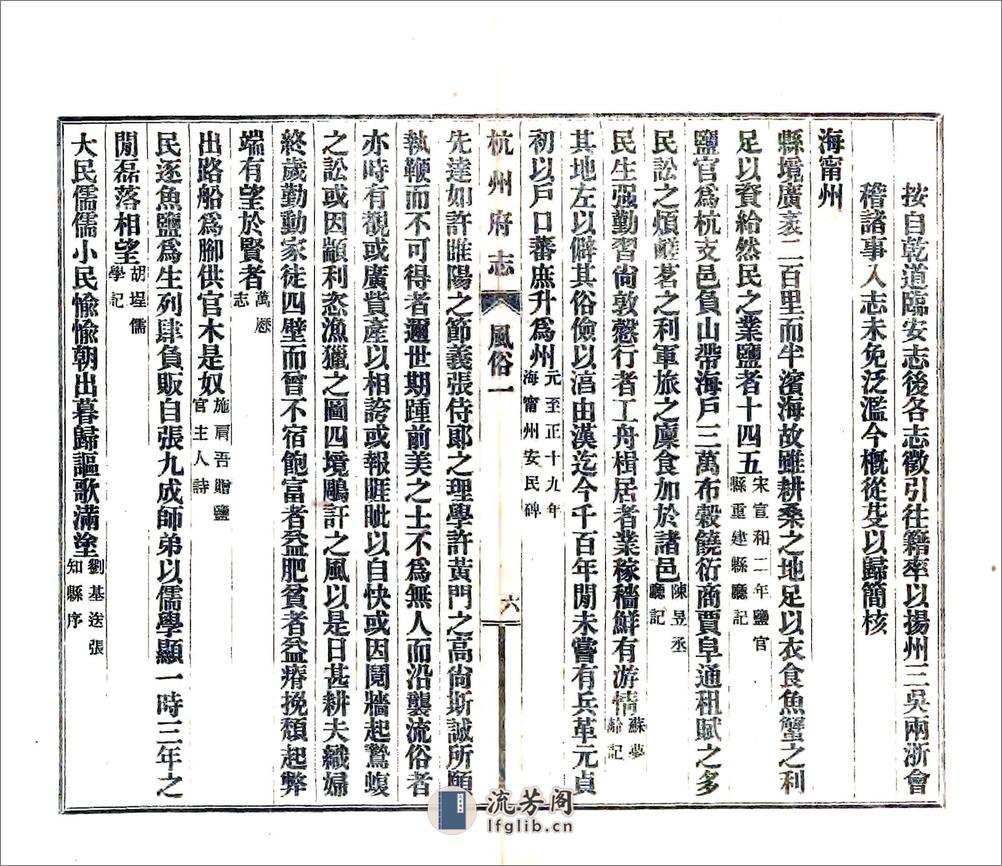 按自乾道臨安志後各志徵引往籍率以揚州三吳兩浙會
稽諸事入志未免泛濫今槪從芟以歸簡核
海甯州
縣境廣袤二百里而半濱海故雖耕桑之地足以衣食魚蟹之利
足以資給然民之業鹽者十四五宋宣和二年鹽官縣重建縣廳記
鹽官爲杭支邑負山帶海戶三萬布穀饒衍商賈阜通租賦之多
民訟之煩鹺茗之利軍旅之廩食加於諸邑陳昱丞廳記
民生强勤習尙敦慤行者工舟楫居者業稼穡鮮有游惰蘇夢齡記
其地左以僻其俗儉以淳由漢迄今千百年閒未嘗有兵革元貞
初以戶口蕃庶升爲州元至正十九年海甯州安民碑
杭州府志 風俗一 六
先達如許睢陽之節義張侍郞之理學許黃門之高尙斯誠所願
執鞭而不可得者邇世期踵前美之士不爲無人而沿襲流俗者
亦時有覩或廣貲產以相誇或報睚眦以自快或因鬩牆起鷙蝮
之訟或因顓利恣漁獵之圖四境鵰訐之風以是日甚耕夫織婦
終歲勤動家徒四壁而曾不宿飽富者益肥貧者益瘠挽頹起弊
端有望於賢者萬厯志
出路船爲腳供官木是奴施肩吾贈鹽官主人詩
民逐魚鹽爲生列肆負販自張九成師弟以儒學顯一時三年之
閒磊落相望胡埕儒學記
大民儒儒小民愉愉朝出暮歸謳歌滿塗劉基送張知縣序
流芳阁
lfglib.cn